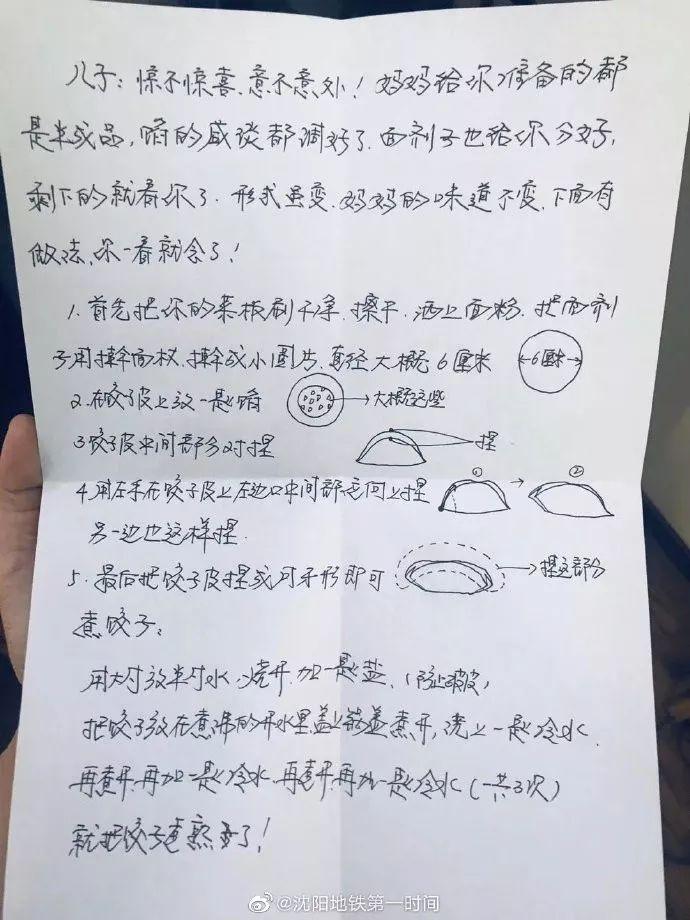 儿子：惊不惊喜、意不意外！妈妈给你准备的都
是半成品，馅的咸淡都调好了．面剂子也给你分好，
剩下的就看你了．形式虽变．妈妈的味道不变．下面有
做法、你一看就会了！
1．首先把你的菜板刷干净．擦干．洒上面粉．把面剂
子用擀面杖．擀成小圆片．直径大概6厘米
6厘米
2．在饺子皮上放一匙馅
大概这些
3饺子皮中间部分对捏
捏
4．用左手在饺子皮上左边口中间部
向上捏
① ②
另一边也这样捏．
5．最后把饺子皮捏成月牙形即可
捏这部分
煮饺子：
用大锅放半锅水．烧开．加一匙盐．（防止破皮）
把饺子放在煮沸的开水里．盖上锅盖煮开，浇上一匙冷水．
再煮开．再加一匙冷水．再煮开再加一匙冷水（一共3次）
就把饺子煮熟了！
@沈阳地铁第一时间